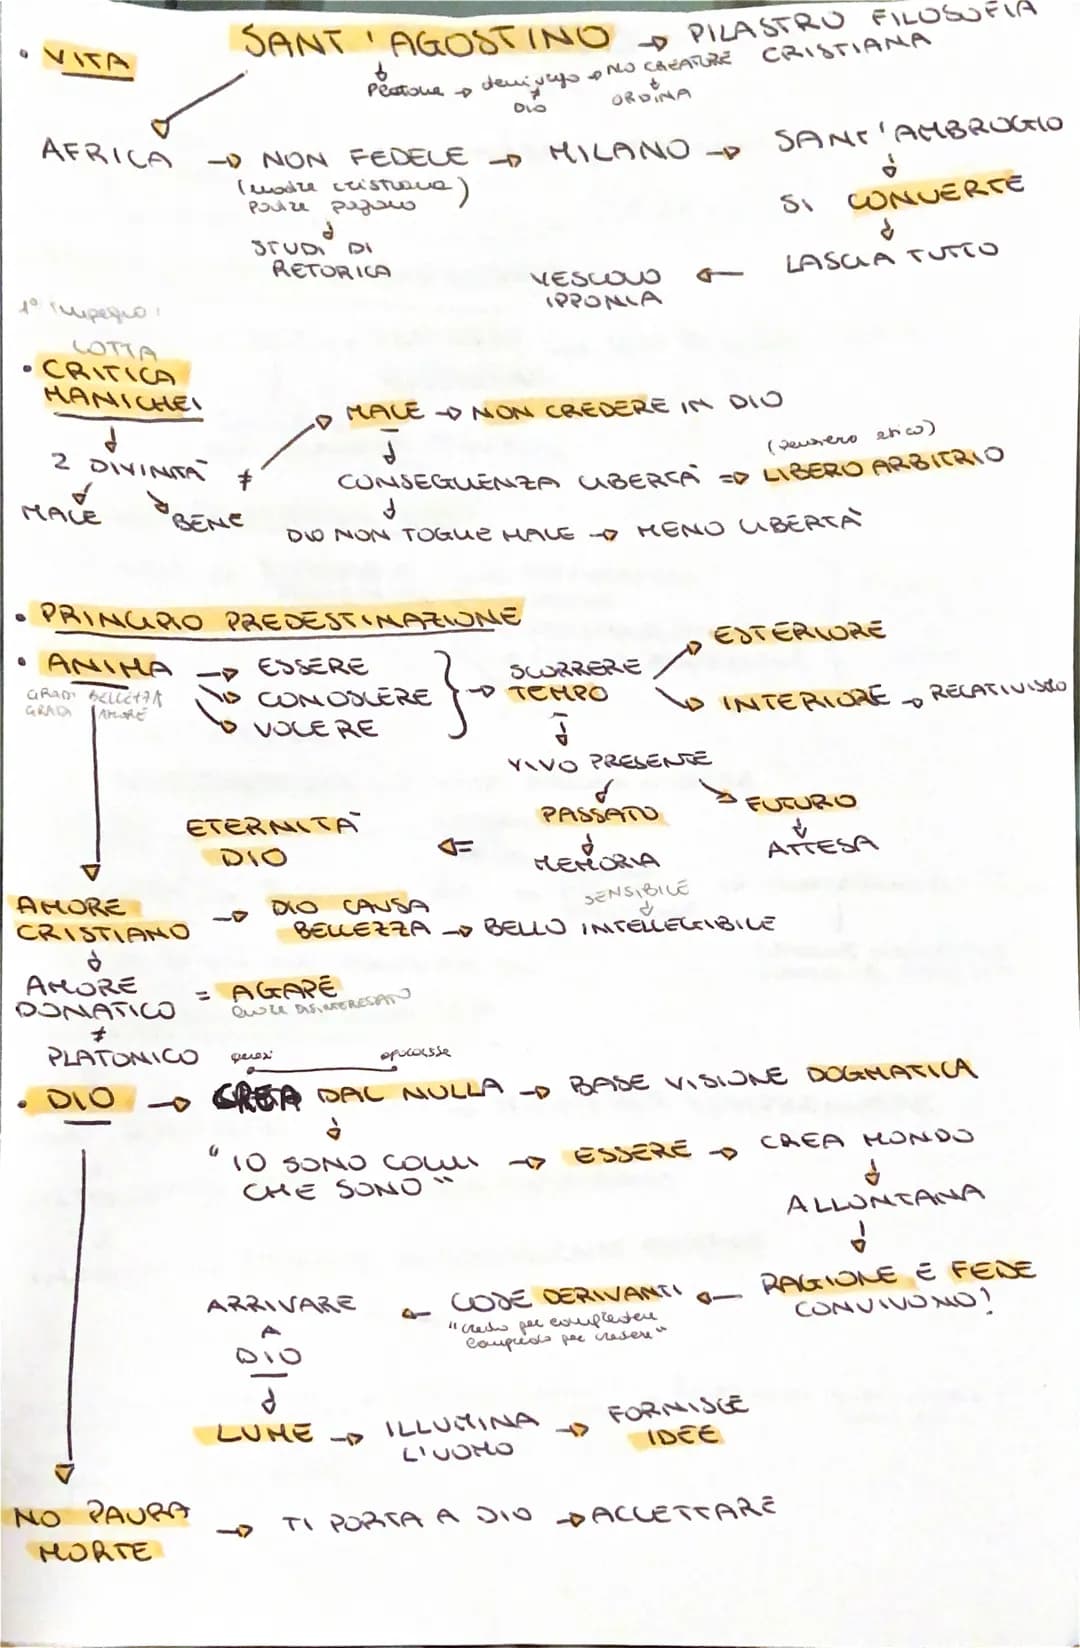 SANT'AGOSTINO → PILASTRO FILOSOFIA
CRISTIANA
• VITA
Platone → demiurgo → NO CREATURE
≠
DIO
ORDINA
AFRICA → NON FEDELE → MILANO → SANT'AMBROGIO
(madre cristiana
padre pagano)
SI CONVERTE
STUDI DI
RETORICA
LASCIA TUTTO
VESCOVO ←
IPPONIA
1° impegno:
LOTTA
• CRITICA
MANICHEI
MALE → NON CREDERE IN DIO
(pensiero etico)
2 DIVINITÀ ≠
CONSEGUENZA LIBERTÀ ⇒ LIBERO ARBITRIO
MALE BENE
DIO NON TOGLIE MALE → MENO LIBERTÀ
• PRINCIPIO PREDESTINAZIONE
• ANIMA → ESSERE
→ CONOSCERE
→ VOLERE
GRADI BELLEZZA
GRADI AMORE
} → SCORRERE
TEMPO
ESTERIORE
INTERIORE → RELATIVISMO
VIVO PRESENTE
PASSATO
FUTURO
MEMORIA
ATTESA
ETERNITÀ ⇐
DIO
AMORE
CRISTIANO
→ DIO CAUSA
BELLEZZA → BELLO INTELLEGIBILE
SENSIBILE
AMORE
DONATICO
= AGAPE
≠
PLATONICO
• DIO → CREA DAL NULLA → BASE VISIONE DOGMATICA
"IO SONO COLUI
CHE SONO"
→ ESSERE → CREA MONDO
ALLONTANA
RAGIONE E FEDE
CONVIVONO!
← COSE DERIVANTI ←
"credo per comprendere
comprendo per credere"
ARRIVARE
A
DIO
LUME → ILLUMINA
L'UOMO
→ FORNISCE
IDEE
NO PAURA
MORTE
→ TI PORTA A DIO → ACCETTARE